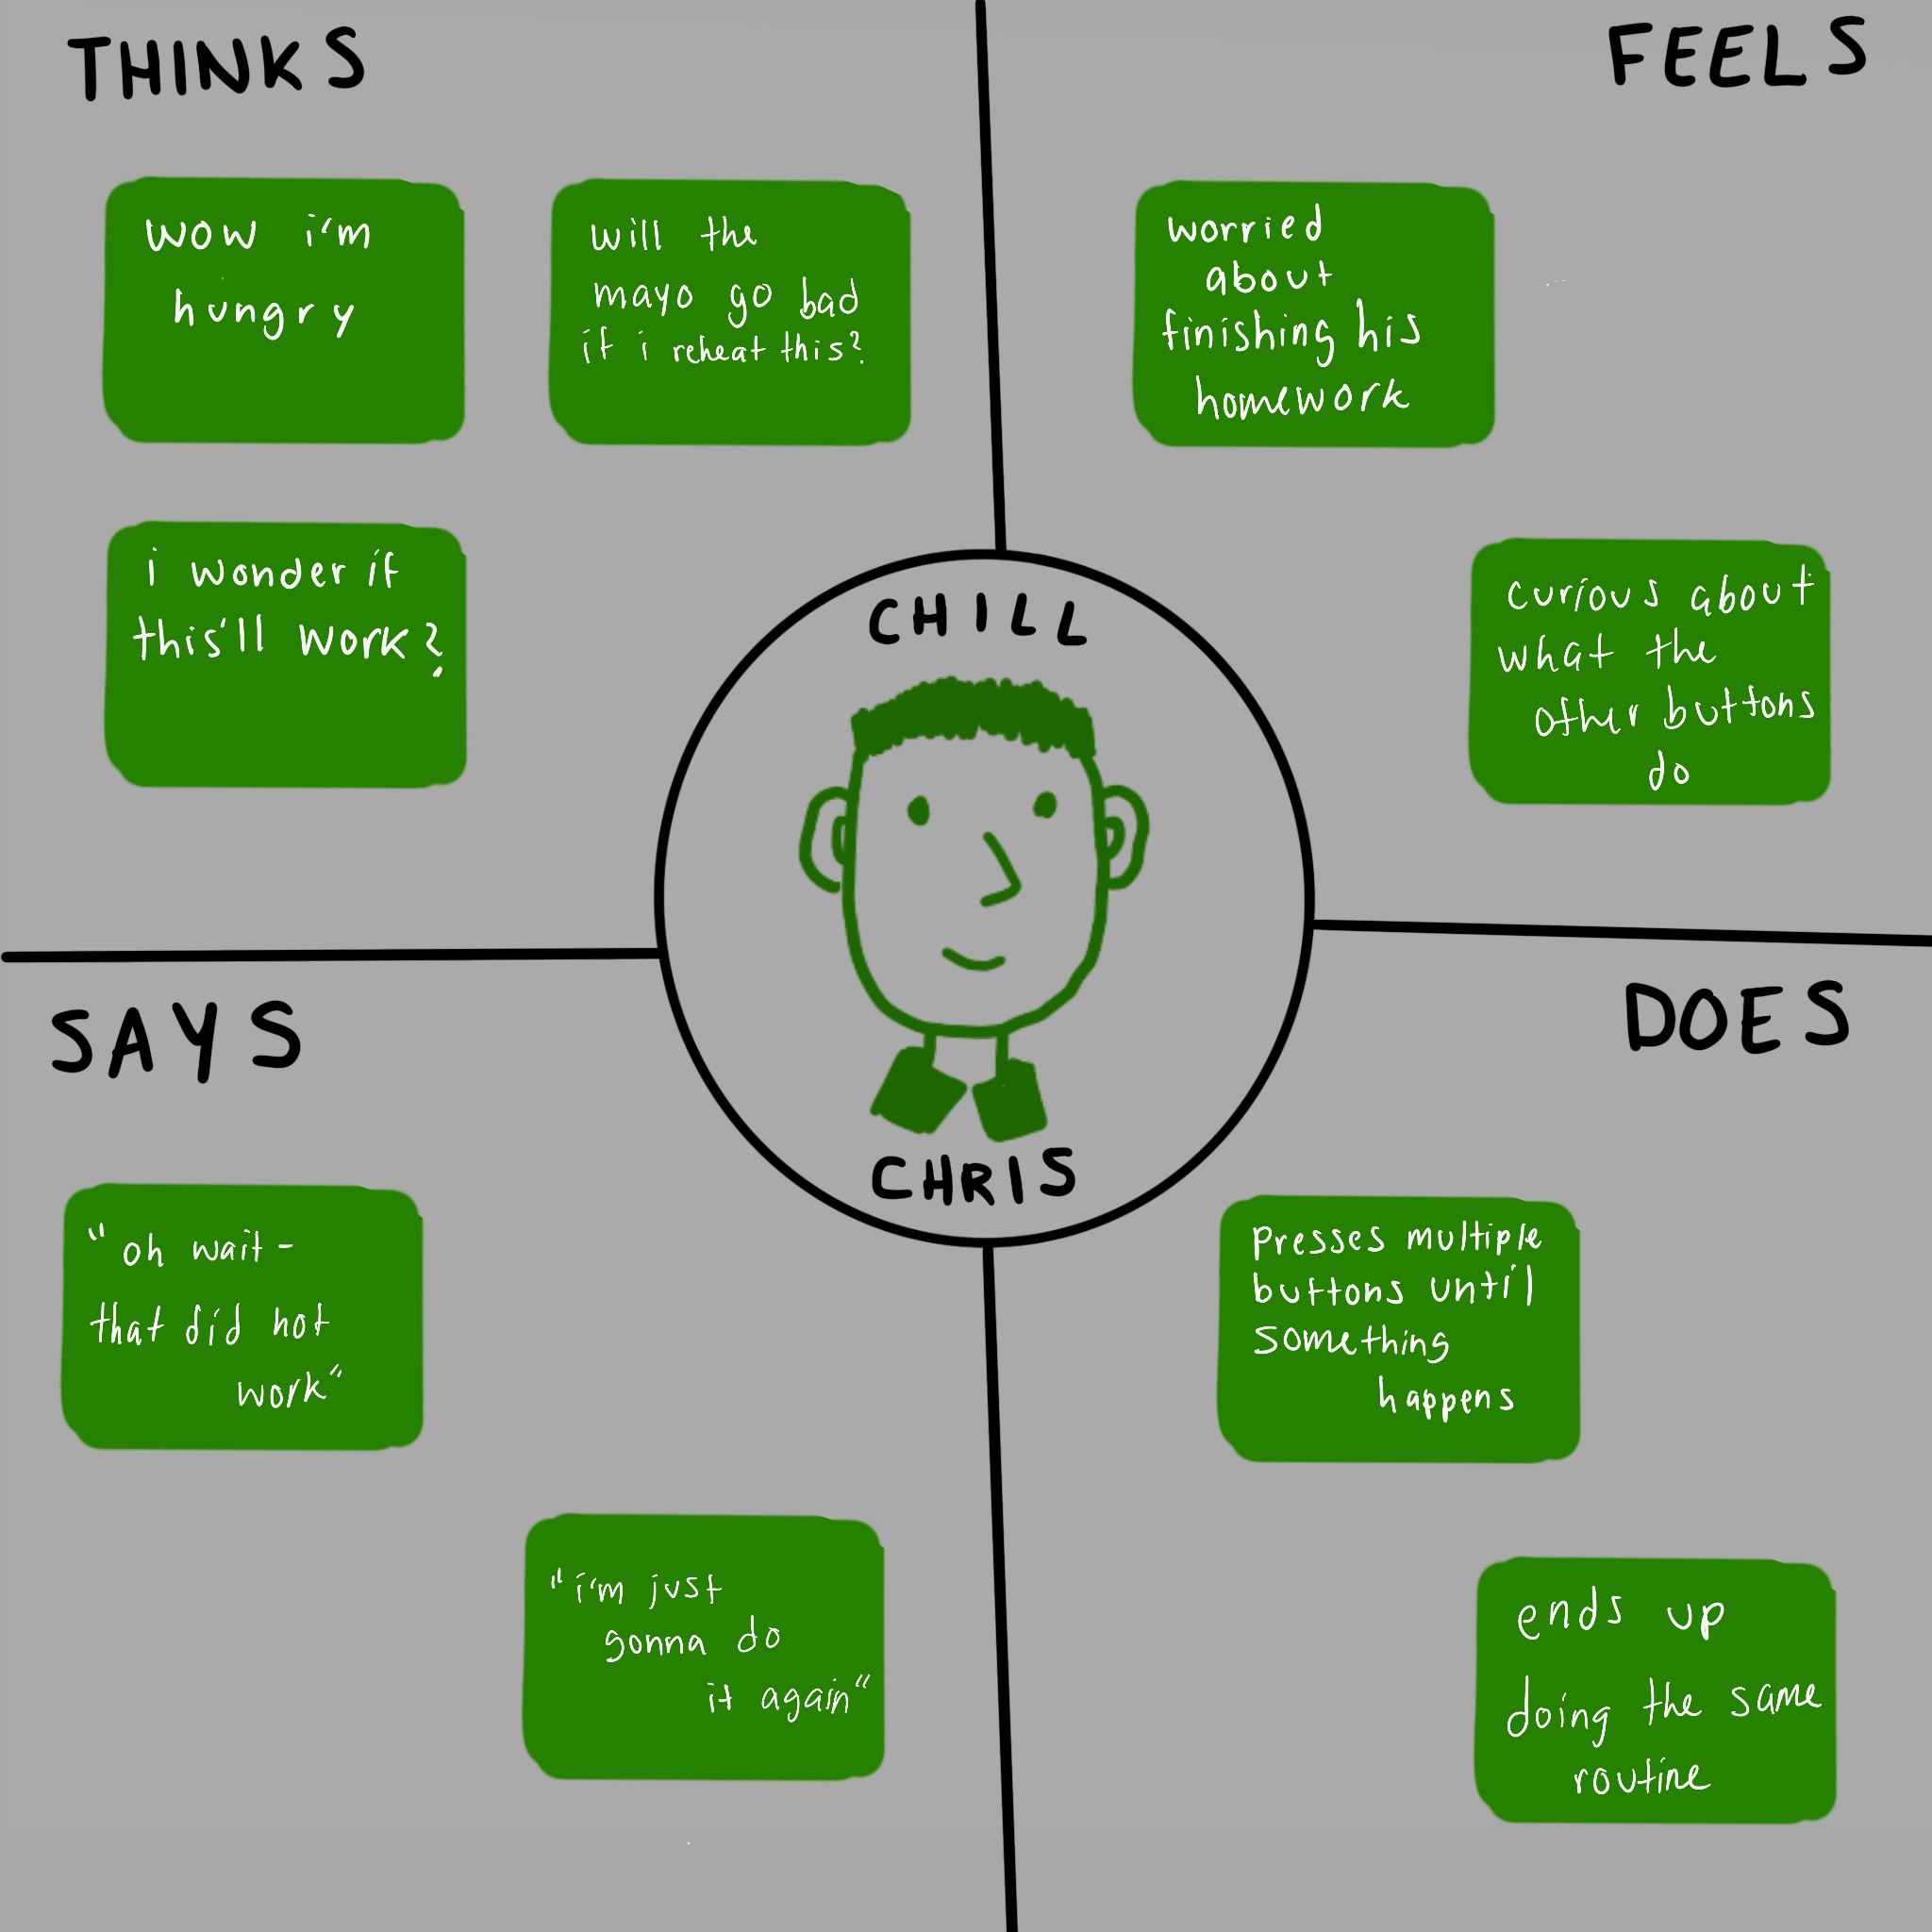 THINKS
wow i'm
hungry
will the
mayo go bad
if i reheat this?
i wonder if
this'll work?
FEELS
worried
about
finishing his
homework
curious about
what the
other buttons
do
CHILL
CHRIS
SAYS
"oh wait-
that did not
work"
"i'm just
gonna do
it again"
DOES
Presses multiple
buttons until
something
happens
ends up
doing the same
routine